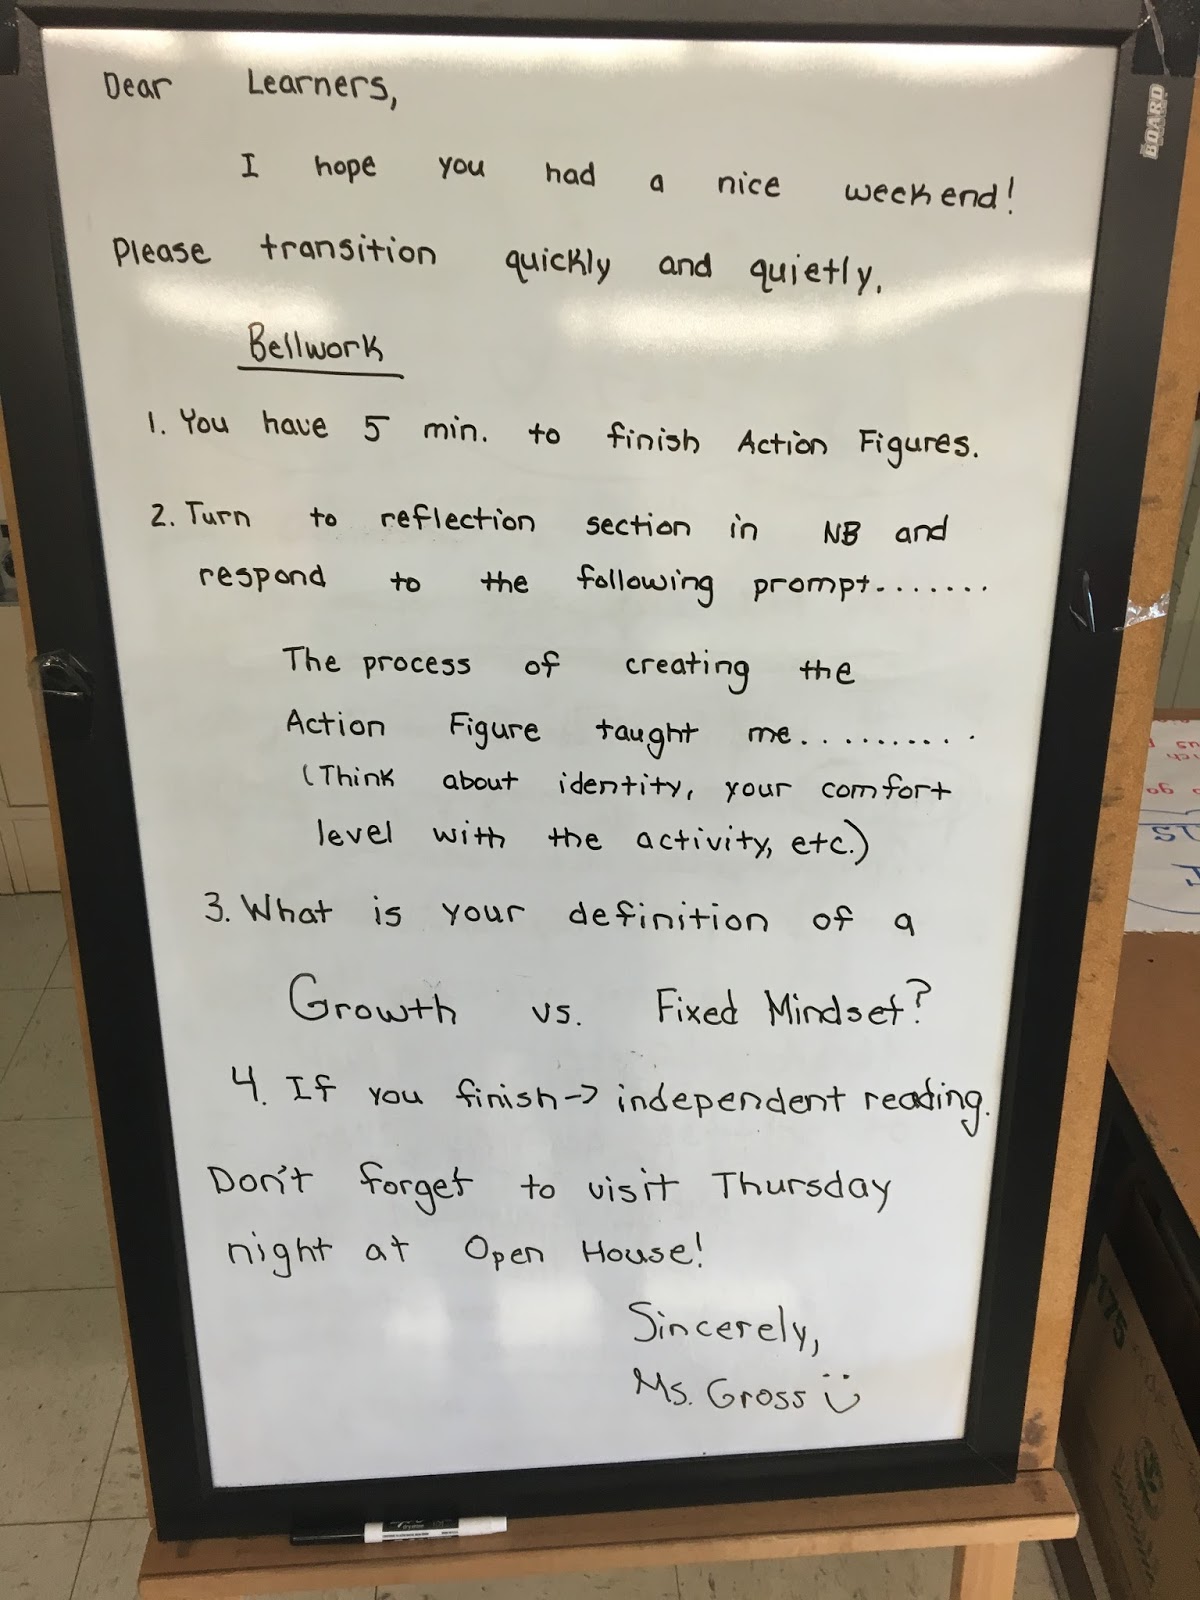 Dear Learners,
I hope you had a nice weekend!
Please transition quickly and quietly.
Bellwork
1. You have 5 min. to finish Action Figures.
2. Turn to reflection section in NB and
respond to the following prompt.......
The process of creating the
Action Figure taught me..........
(Think about identity, your comfort
level with the activity, etc.)
3. What is your definition of a
Growth vs. Fixed Mindset?
4. If you finish → independent reading.
Don't forget to visit Thursday
night at Open House!
Sincerely,
Ms. Gross ü
BOARD